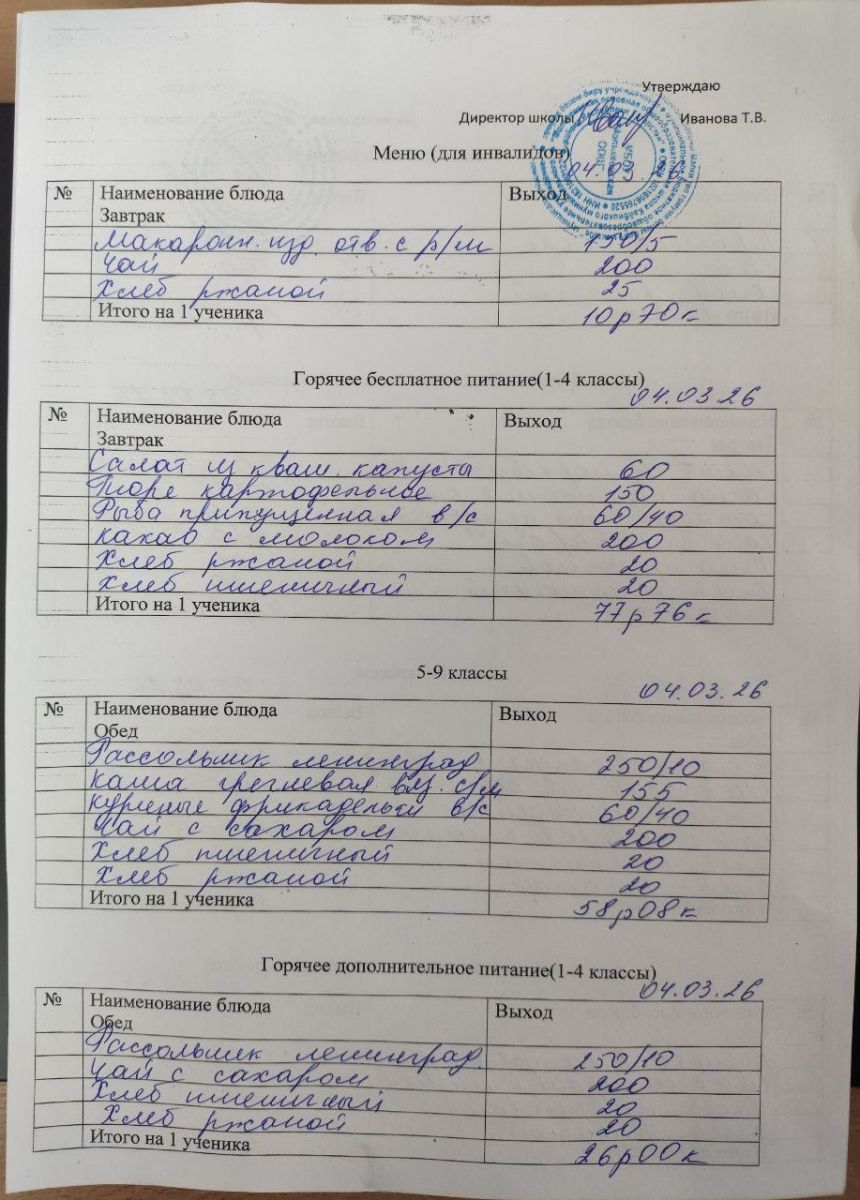 Утверждаю
Директор школы Иванова Т.В.
Меню (для инвалидов)
04.03.26
№ Наименование блюда Выход
Завтрак
Макаронн. изд. отв. с р/м 150/5
Чай 200
Хлеб ржаной 25
Итого на 1 ученика 10р70к
Горячее бесплатное питание(1-4 классы)
04.03.26
№ Наименование блюда Выход
Завтрак
Салат из кваш. капусты 60
Пюре картофельное 150
Рыба припущенная в/с 60/40
Какао с молоком 200
Хлеб ржаной 20
Хлеб пшеничный 20
Итого на 1 ученика 77р76к
5-9 классы
04.03.26
№ Наименование блюда Выход
Обед
Рассольник ленинград. 250/10
Каша гречневая вяз. с/м 155
Куриные фрикадельки в/с 60/40
Чай с сахаром 200
Хлеб пшеничный 20
Хлеб ржаной 20
Итого на 1 ученика 58р08к
Горячее дополнительное питание(1-4 классы)
04.03.26
№ Наименование блюда Выход
Обед
Рассольник ленинград. 250/10
Чай с сахаром 200
Хлеб пшеничный 20
Хлеб ржаной 20
Итого на 1 ученика 26р00к